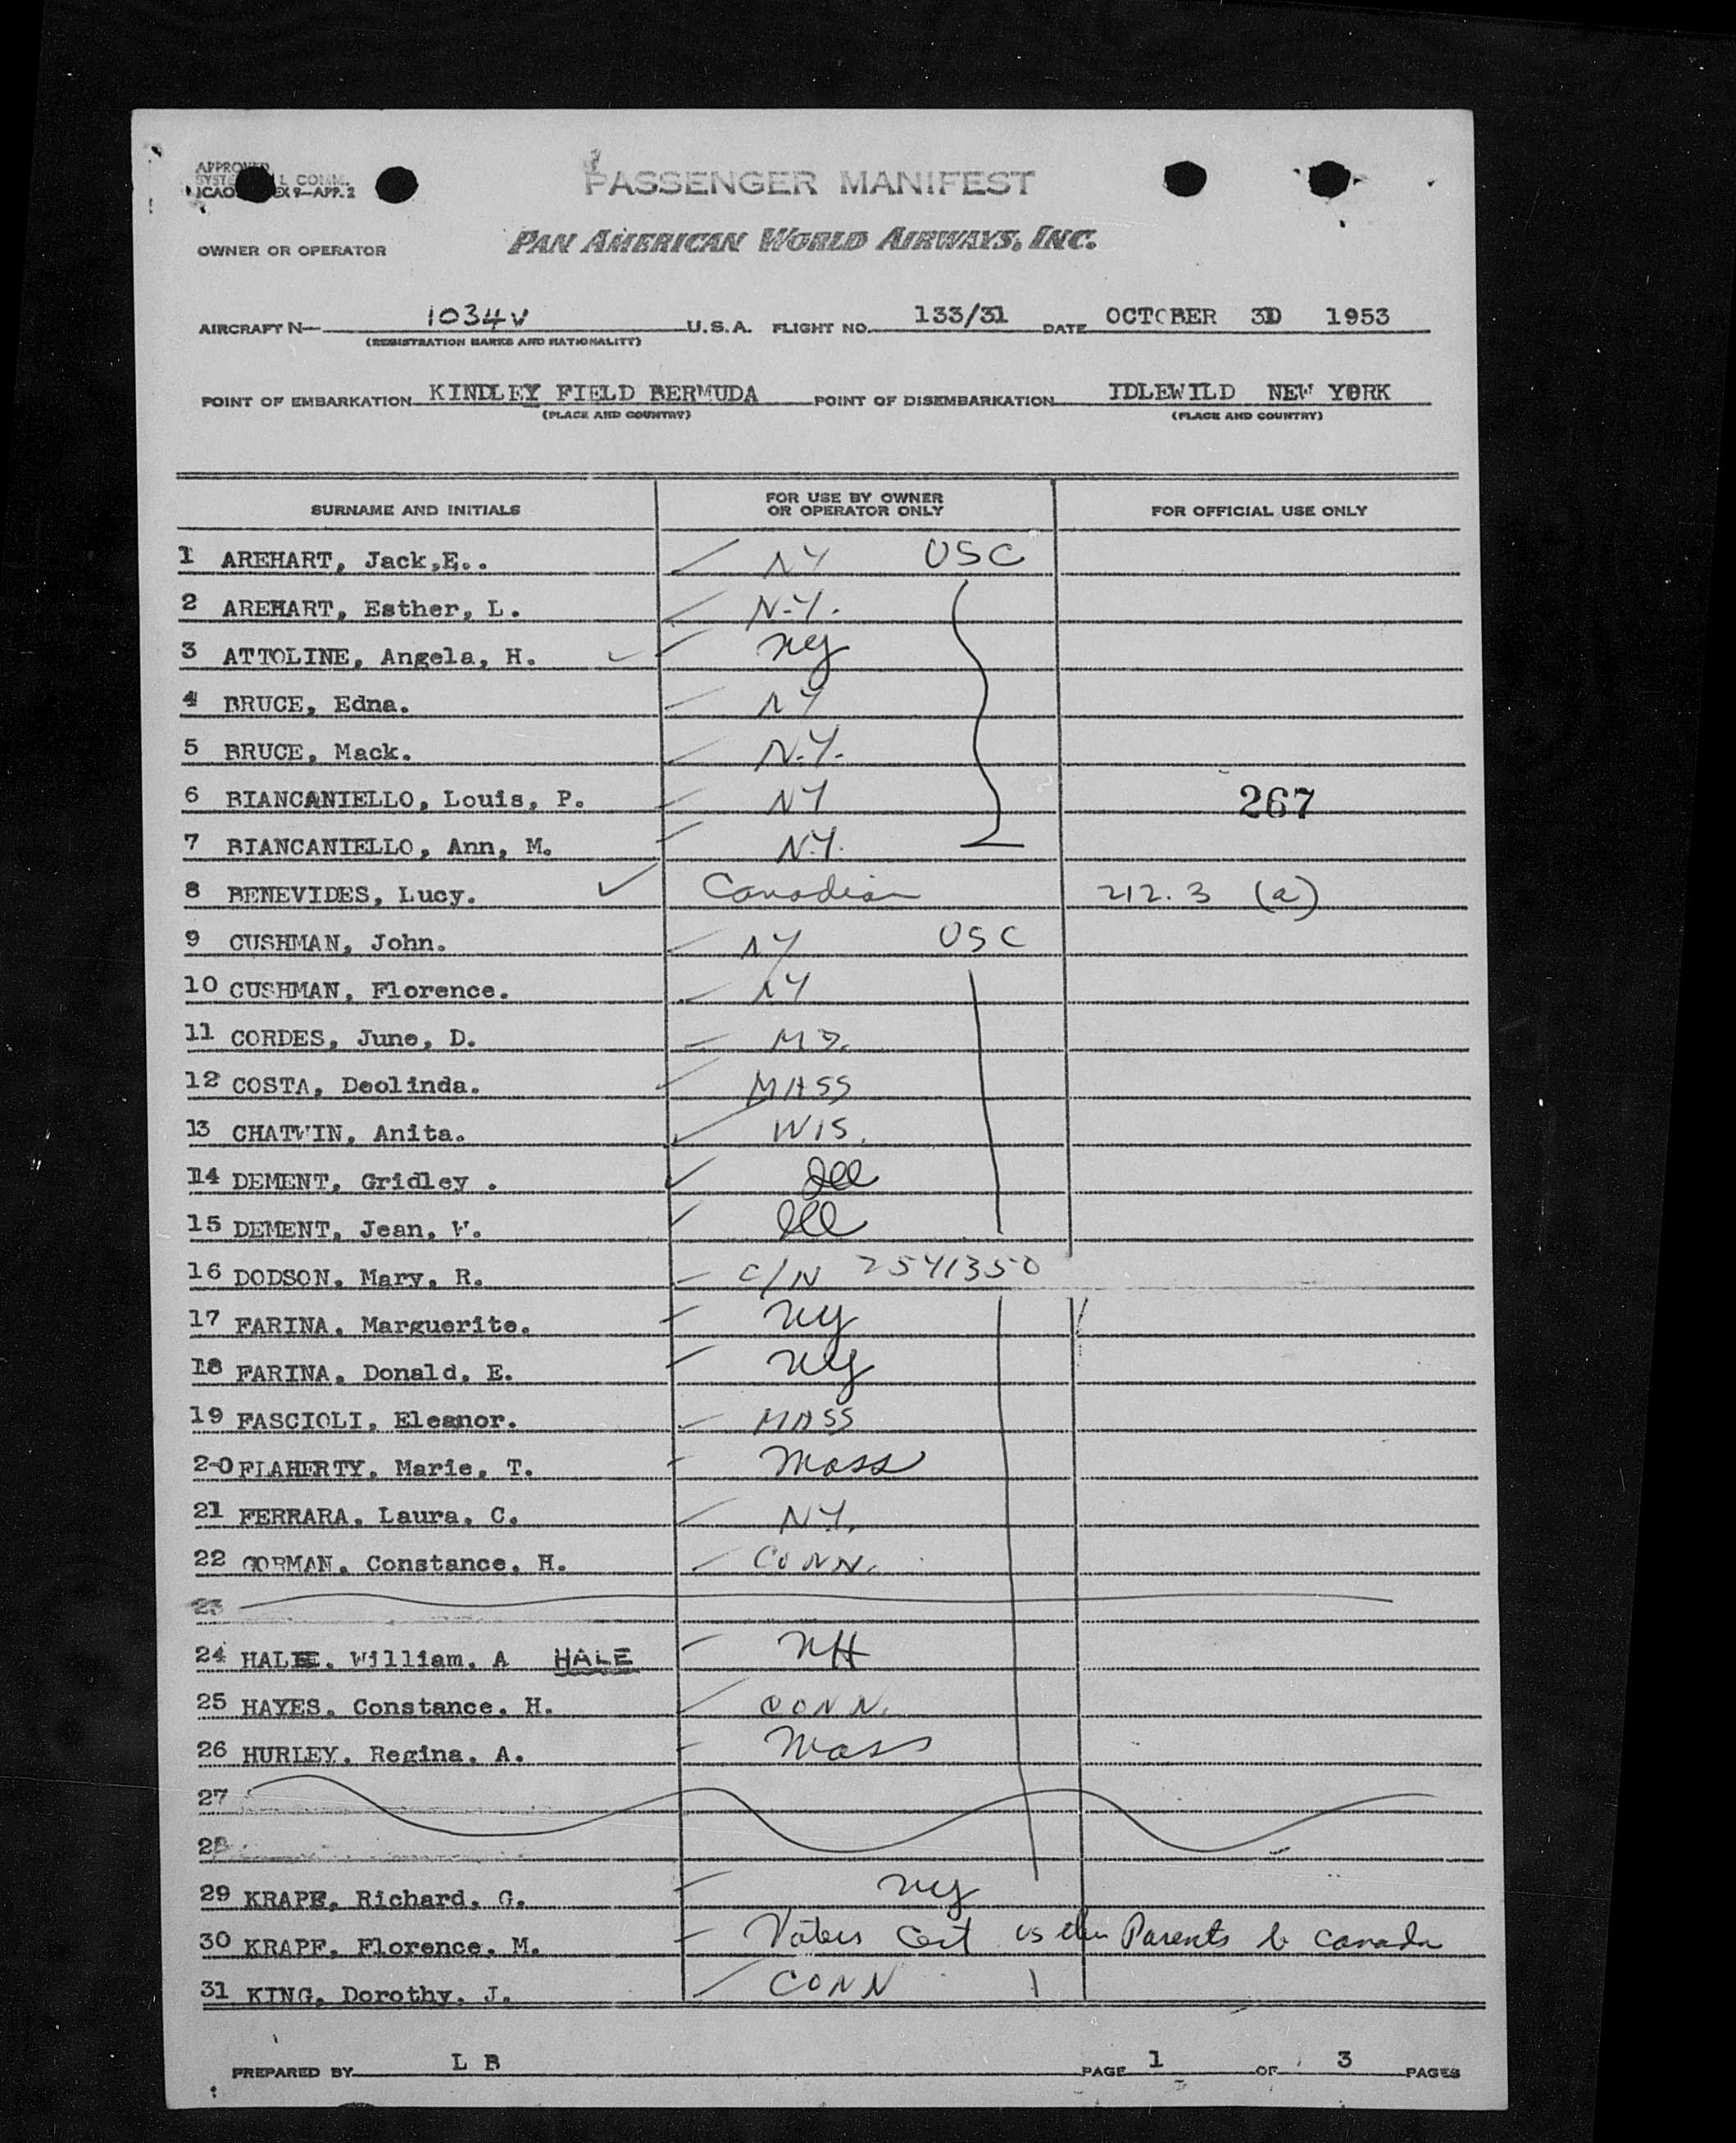 APPROVED
SYSTE L COMM.
ICAO EX 9—APP. 2
PASSENGER MANIFEST
OWNER OR OPERATOR PAN AMERICAN WORLD AIRWAYS, INC.
AIRCRAFT N— 1034V U.S.A. FLIGHT NO. 133/31 DATE OCTOBER 3D 1953
(REGISTRATION MARKS AND NATIONALITY)
POINT OF EMBARKATION KINDLEY FIELD BERMUDA POINT OF DISEMBARKATION IDLEWILD NEW YORK
(PLACE AND COUNTRY) (PLACE AND COUNTRY)
SURNAME AND INITIALS FOR USE BY OWNER OR OPERATOR ONLY FOR OFFICIAL USE ONLY
1 AREHART, Jack,E.. NY USC
2 AREHART, Esther, L. N.Y.
3 ATTOLINE, Angela, H. NY
4 BRUCE, Edna. NY
5 BRUCE, Mack. N.Y.
6 BIANCANIELLO, Louis, P. NY 267
7 BIANCANIELLO, Ann, M. N.Y.
8 BENEVIDES, Lucy. Canadian 212.3 (a)
9 CUSHMAN, John. NY USC
10 CUSHMAN, Florence. NY
11 CORDES, June, D. MD.
12 COSTA, Deolinda. MASS
13 CHATWIN, Anita. WIS.
14 DEMENT, Gridley . Ill
15 DEMENT, Jean, W. Ill
16 DODSON, Mary, R. C/N 2541350
17 FARINA, Marguerite. NY
18 FARINA, Donald, E. NY
19 FASCIOLI, Eleanor. MASS
20 FLAHERTY, Marie, T. Mass
21 FERRARA, Laura, C. N.Y.
22 GORMAN, Constance, H. CONN.
23
24 HALE, William, A HALE NH
25 HAYES, Constance, H. CONN.
26 HURLEY, Regina, A. Mass
27
28
29 KRAPF, Richard, G. NY
30 KRAPF, Florence, M. Voters Cert US Parents b Canada
31 KING, Dorothy, J. CONN
PREPARED BY L B PAGE 1 OF 3 PAGES